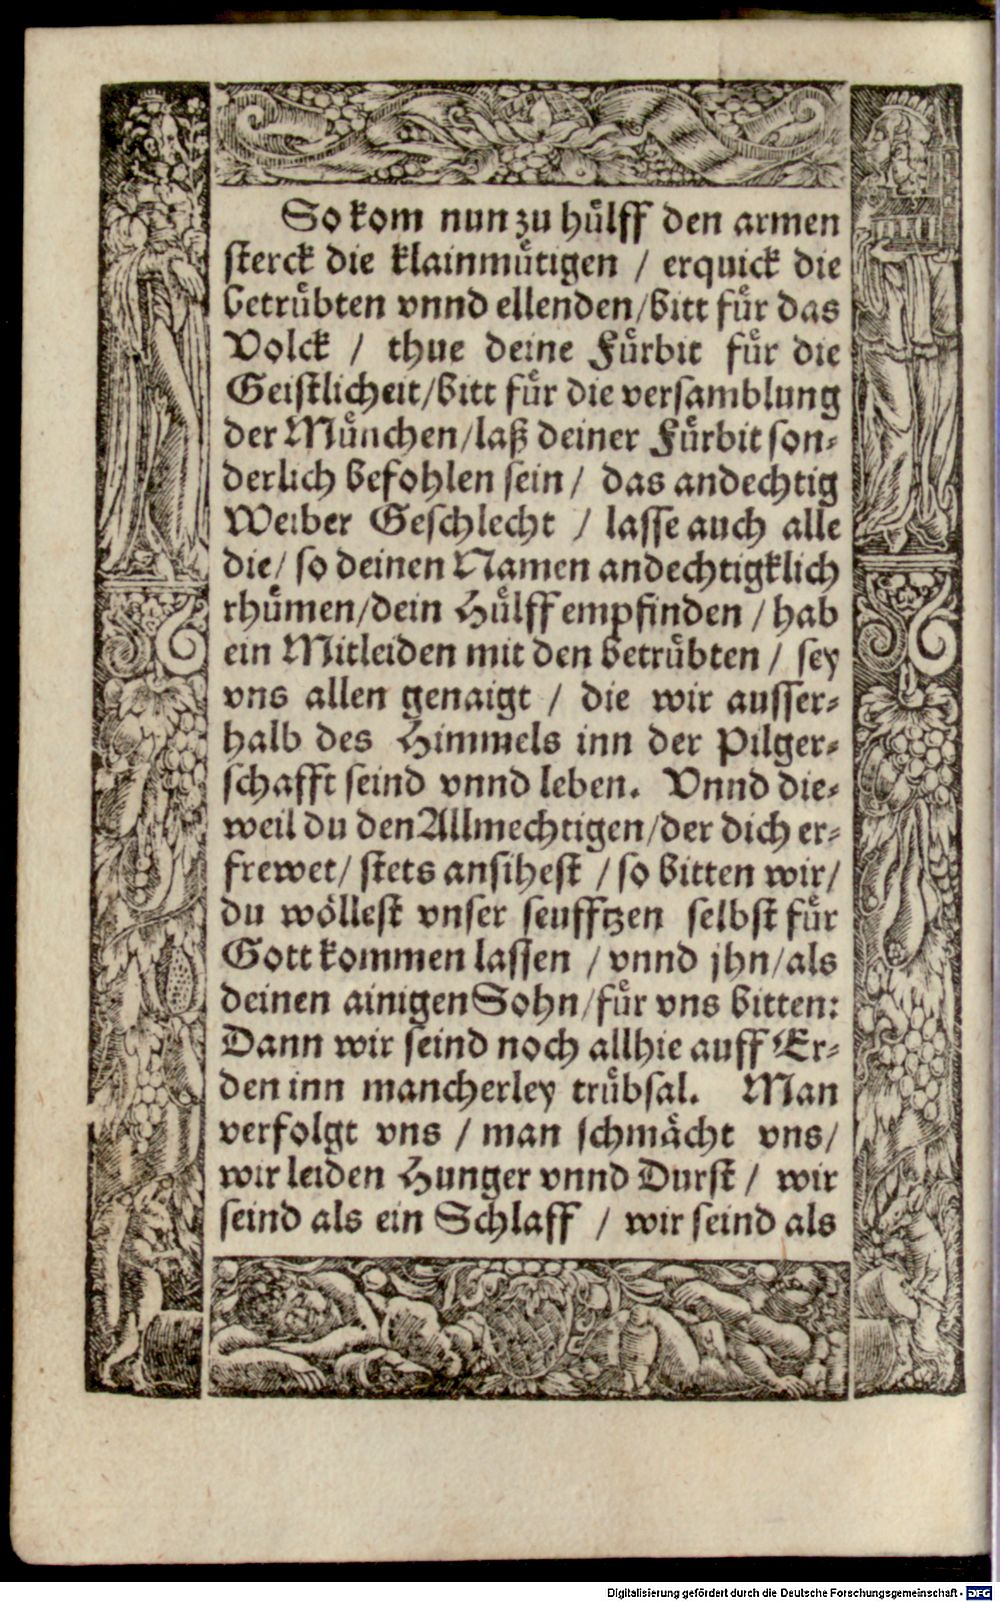 So kom nun zu hülff den armen
sterck die klainmütigen / erquick die
betrübten vnnd ellenden/bitt für das
Volck / thue deine Fürbit für die
Geistlicheit/bitt für die versamblung
der München/laß deiner Fürbit son-
derlich befohlen sein / das andechtig
Weiber Geschlecht / lasse auch alle
die/ so deinen Namen andechtigklich
rhümen/dein Hülff empfinden / hab
ein Mitleiden mit den betrübten / sey
vns allen genaigt / die wir ausser-
halb des Himmels inn der Pilger-
schafft seind vnnd leben. Vnnd die-
weil du den Allmechtigen/der dich er-
frewet/ stets ansihest / so bitten wir/
du wöllest vnser seufftzen selbst für
Gott kommen lassen / vnnd jhn/als
deinen ainigen Sohn/für vns bitten:
Dann wir seind noch allhie auff Er-
den inn mancherley trübsal. Man
verfolgt vns / man schmächt vns/
wir leiden Hunger vnnd Durst / wir
seind als ein Schlaff / wir seind als
Digitalisierung gefördert durch die Deutsche Forschungsgemeinschaft - DFG